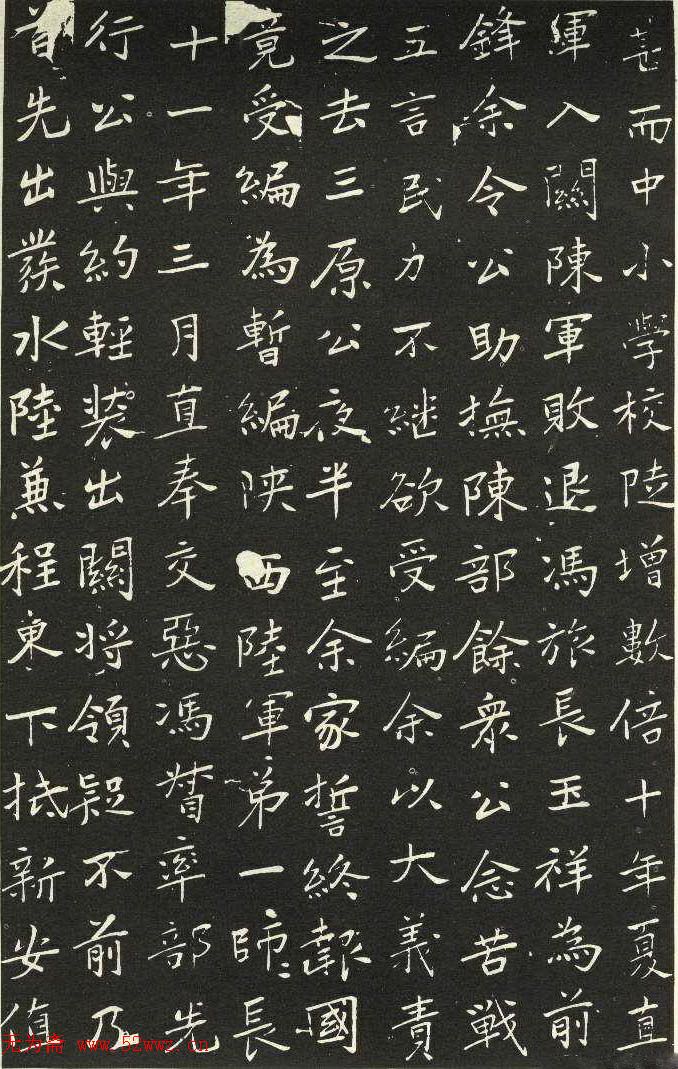 而中小學校陡增數倍十年夏直
軍入關陳軍敗退馮旅長玉祥為前
鋒余令公助撫陳部餘衆公念苦戰
五言民力不繼欲受編余以大義責
之去三原公夜半至余家誓終報國
竟受編為暫編陕西陸軍弟一師〻長
十一年三月直奉交惡馮督率部先
行公與約輕装出關将領疑不前乃
首先出發水陸兼程東下抵新安偵
无为斋 www.52wwz.cn